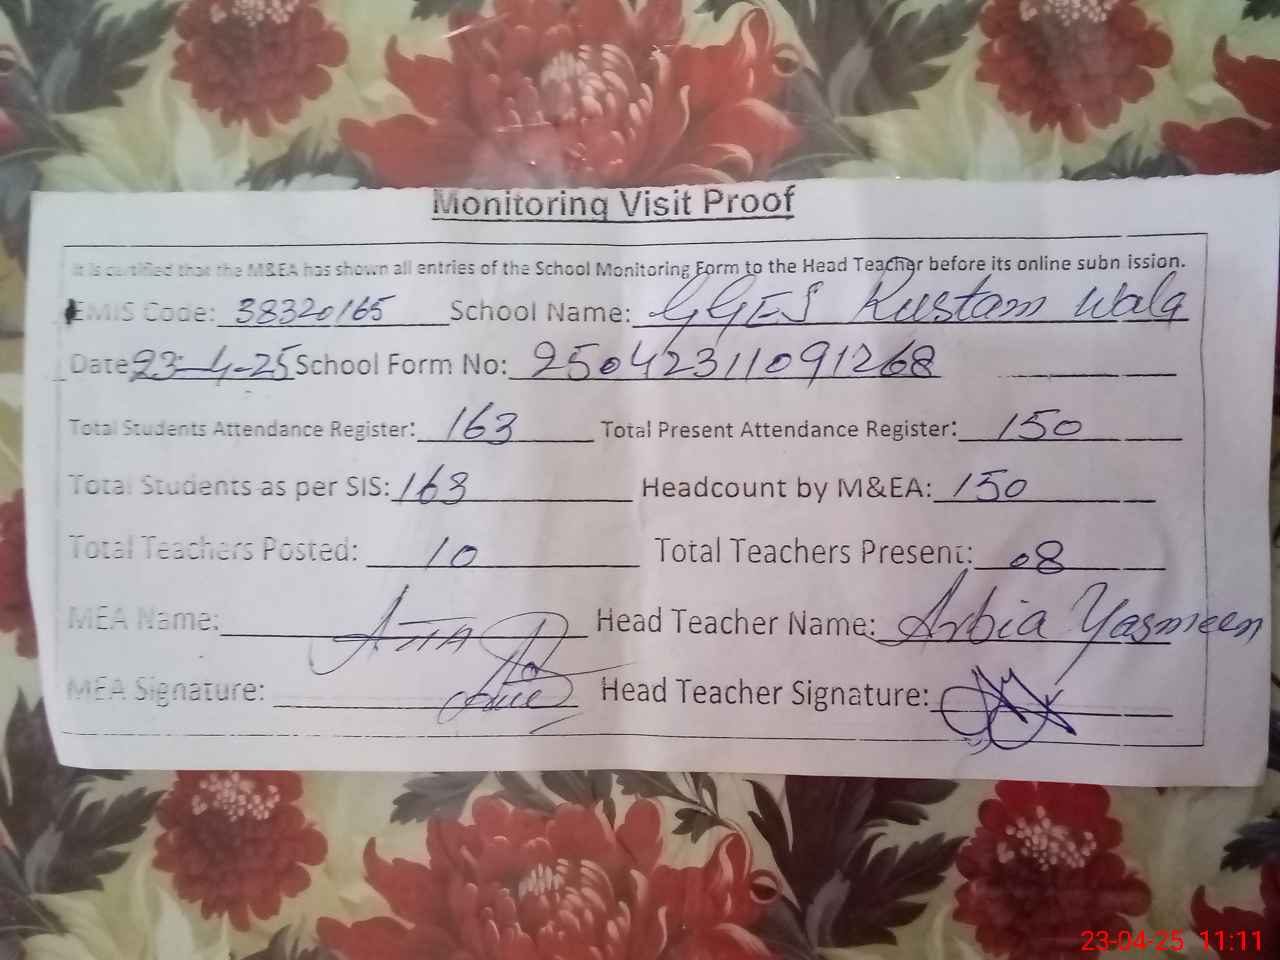 Monitoring Visit Proof
It is certified that the M&EA has shown all entries of the School Monitoring Form to the Head Teacher before its online subn ission.
EMIS Code: 38320165 School Name: GGES Rustam Wala
Date 23-4-25 School Form No: 25042311091268
Total Students Attendance Register: 163 Total Present Attendance Register: 150
Total Students as per SIS: 163 Headcount by M&EA: 150
Total Teachers Posted: 10 Total Teachers Present: 08
MEA Name: Head Teacher Name: Arbia Yasmeen
MEA Signature: Head Teacher Signature:
23-04-25 11:11